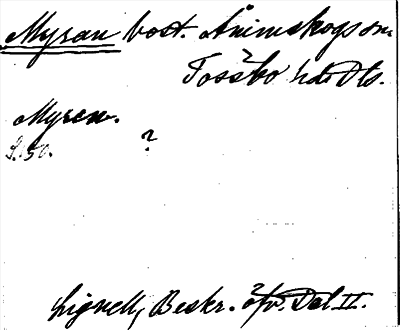 Myran bost. Ånimskogs sn.
Tössbo hd Dls.
Myren.
S. 50. ?
Lignell, Beskr. öfv. Dal II.